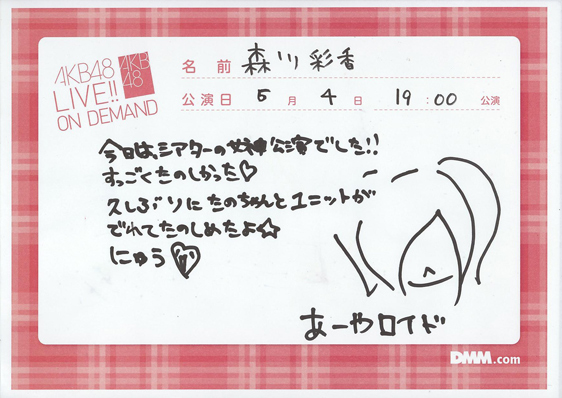 AKB48
LIVE!!
ON DEMAND
AKB
48
名前 森川彩香
公演日 5月4日 19:00 公演
今日は、シアターの女神公演でした!!
すっごくたのしかった♡
久しぶりにたのちゃんとユニットが
でれてたのしめたよ☆
にゅう
あーやロイド
DMM.com